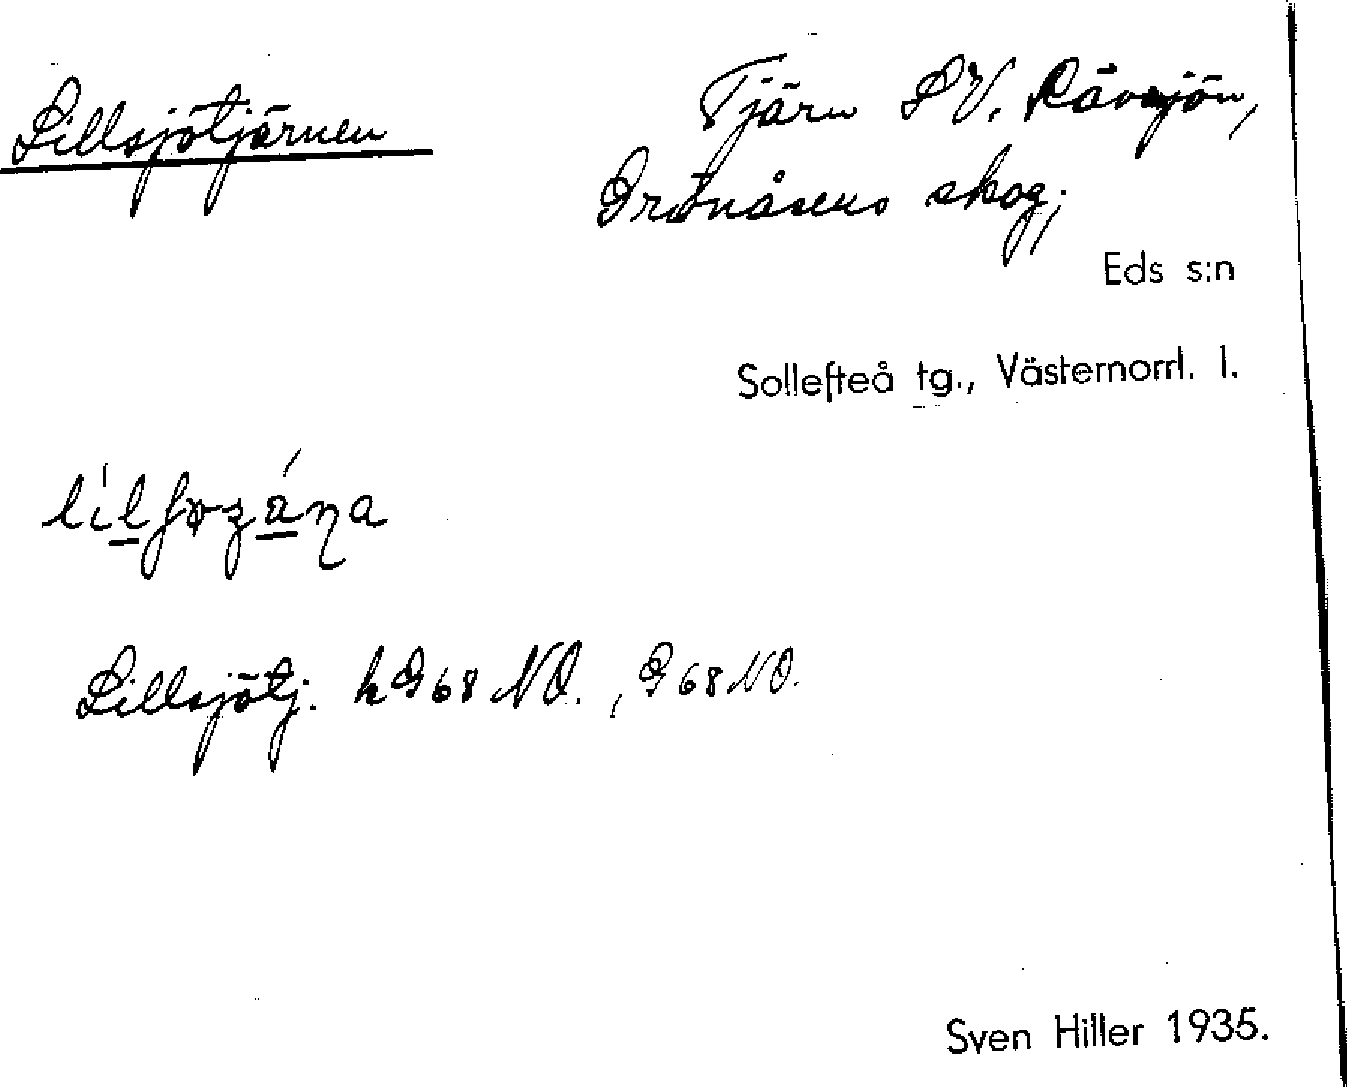 Lillsjötjärnen
Tjärn SV. Rävsjön,
Grönåsens skog;
Eds s:n
Sollefteå tg., Västernorrl. l.
Lillsjötj. hG68 NO., G68NO.
Sven Hiller 1935.